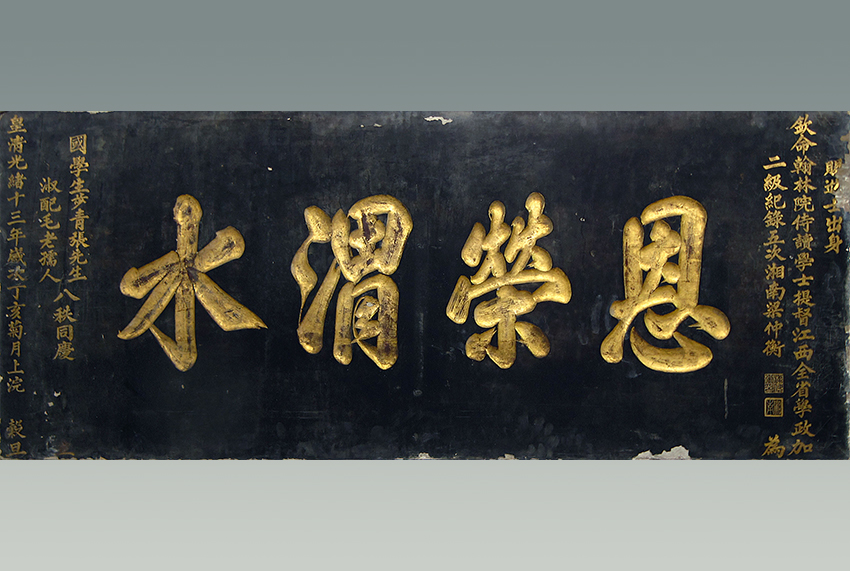 賜進士出身
欽命翰林院侍讀學士提督江西全省學政加
二級紀錄五次湘南梁仲衡
為
恩榮渭水
國學生步青張先生
淑配毛老孺人
八秩同慶
立
皇清光緒十三年歲次丁亥菊月上浣 穀旦